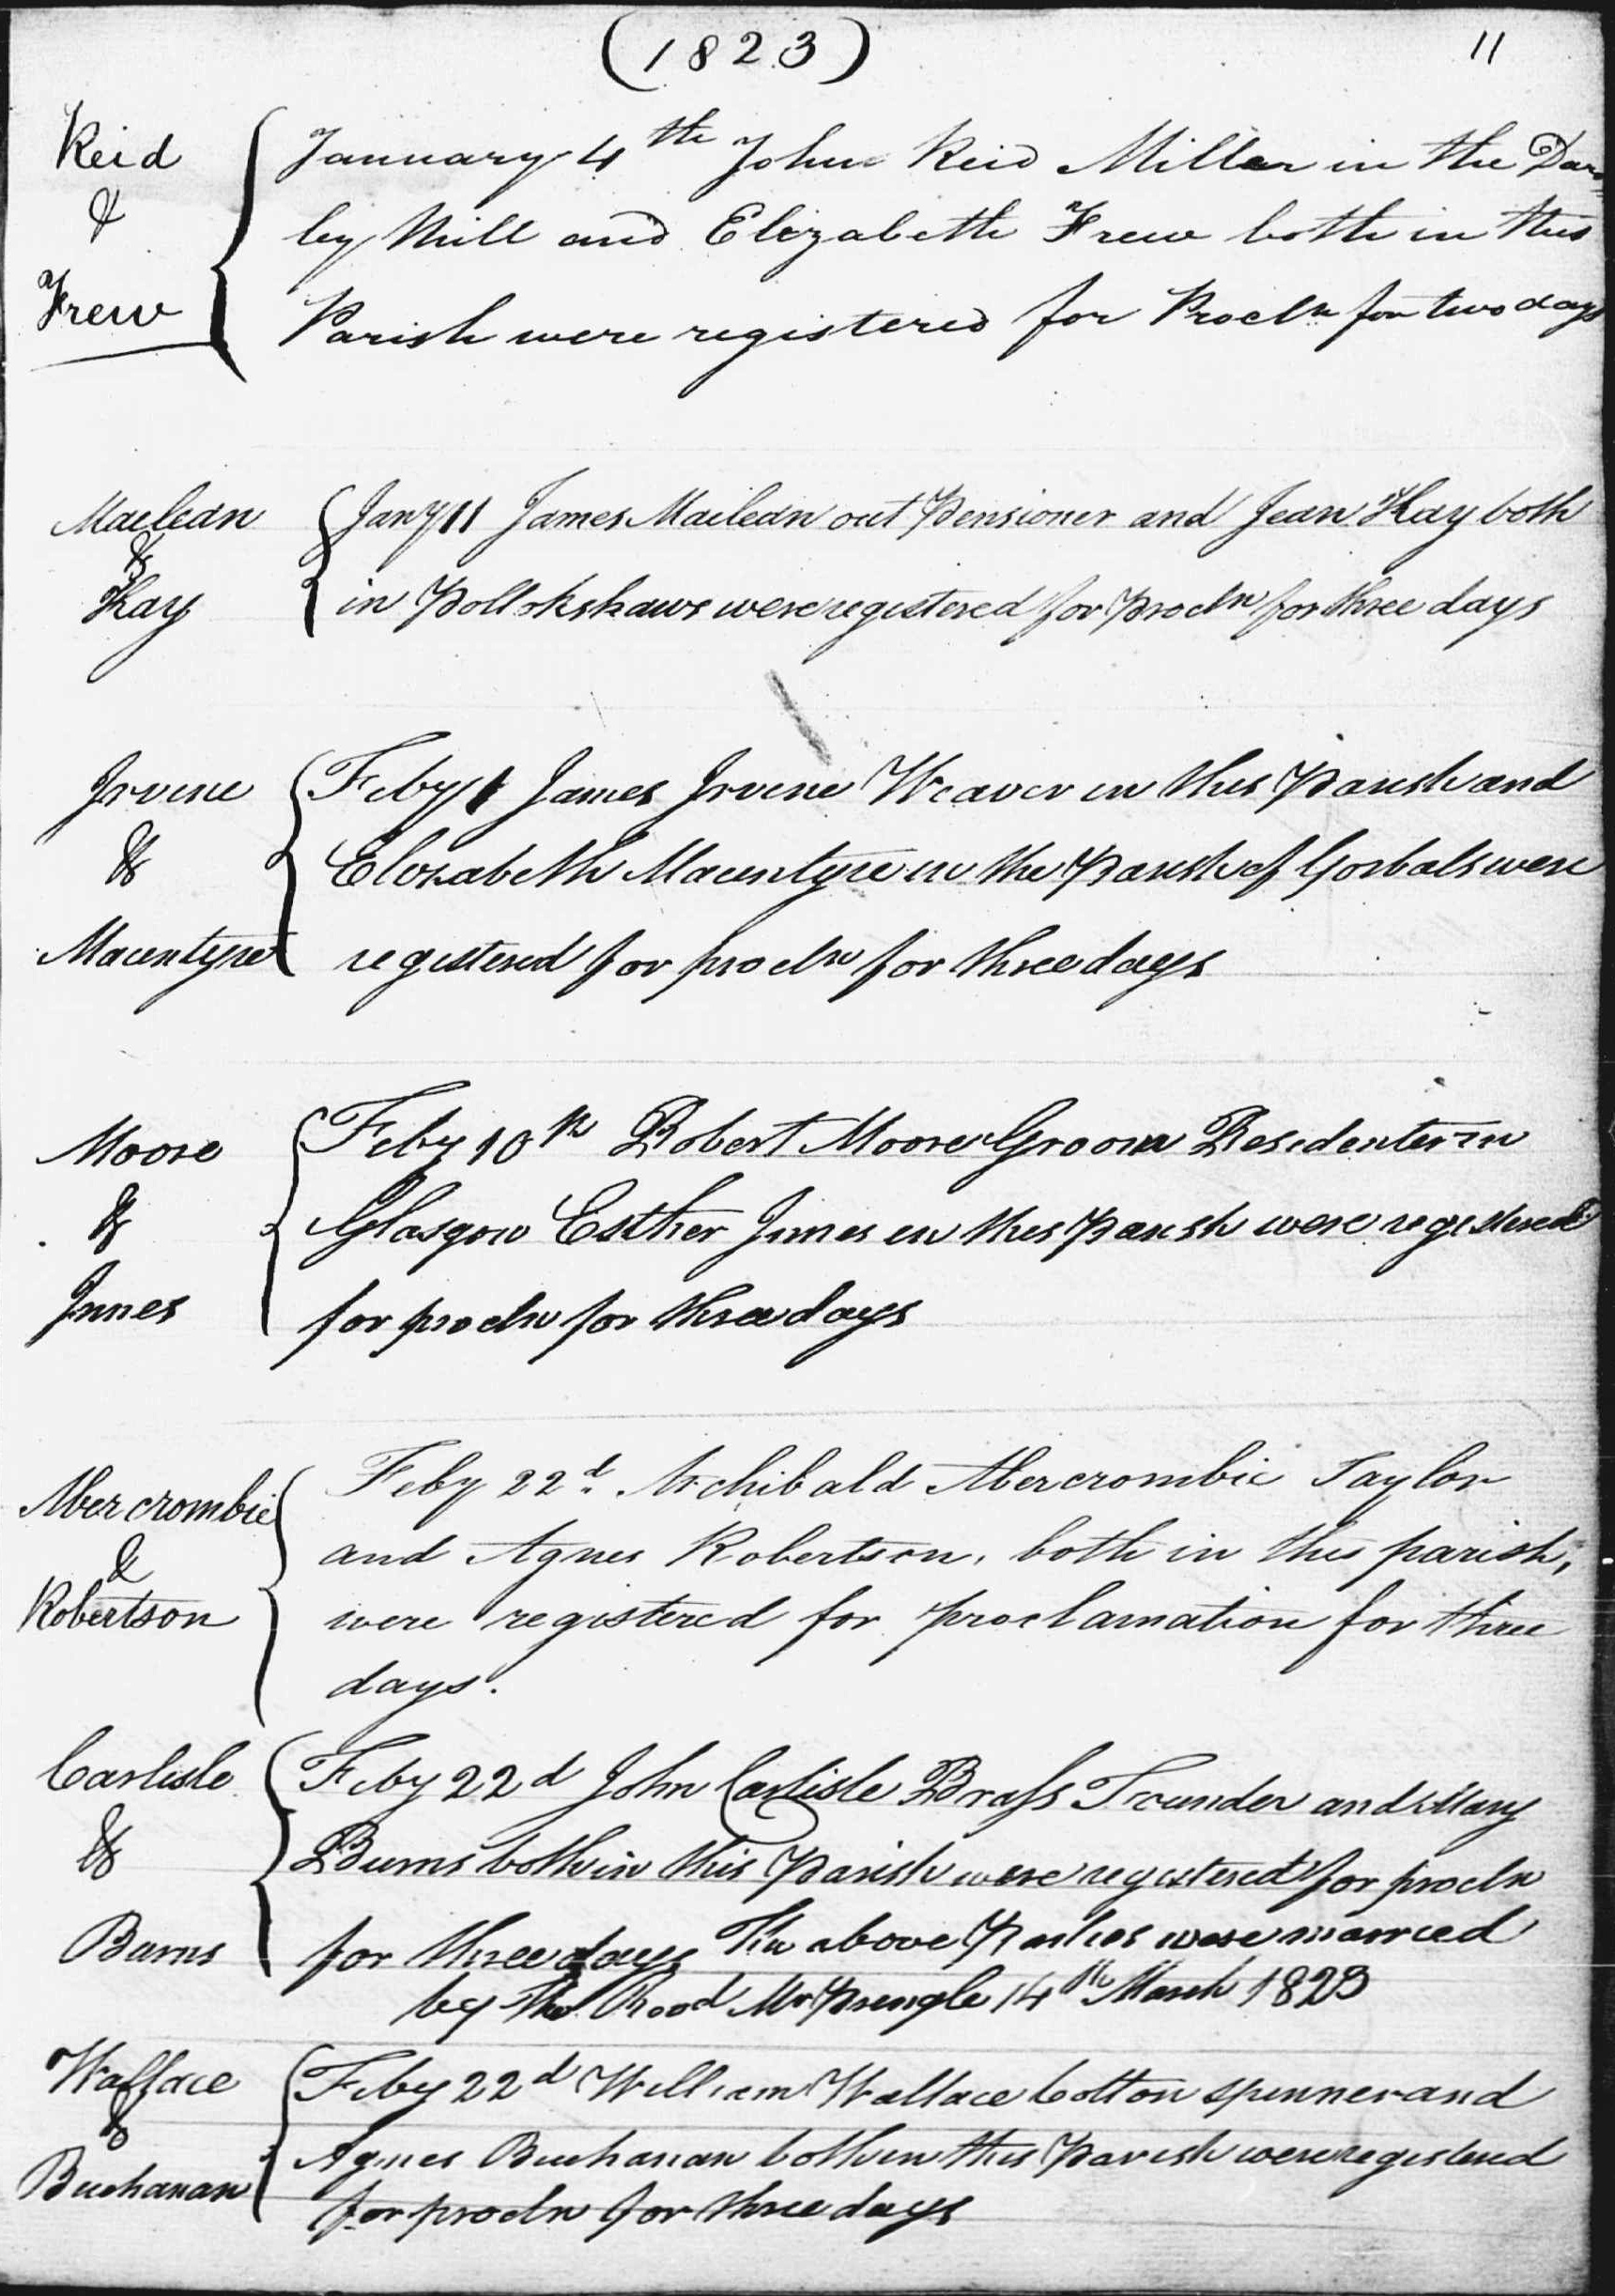 (1823)
11
Reid
&
Frew
January 4th John Reid Miller in the Darn=
ley Mill and Elizabeth Frew both in this
Parish were registered for Procln for two days
Maclean
&
Kay
Jany 11 James Maclean out Pensioner and Jean Kay both
in Pollokshaws were registered for procln for three days
Irvine
&
Macintyre
Feby 1 James Irvine Weaver in this Parish and
Elizabeth Macintyre in the Parish of Gorbals were
registered for procln for three days
Moore
&
Innes
Feby 10th Robert Moore Groom Residenter in
Glasgow Esther Innes in this Parish were registered
for procln for three days
Abercrombie
&
Robertson
Feby 22d. Archibald Abercrombie Taylor
and Agnes Robertson, both in this parish,
were registered for proclamation for three
days.
Carlisle
&
Burns
Feby 22d John Carlisle Brass Founder and Mary
Burns both in this Parish were registered for procln
for three days The above Parties were married
by the Revd Mr Pringle 14th March 1823
Wallace
&
Buchanan
Feby 22d William Wallace Cotton spinner and
Agnes Buchanan both in this Parish were registered
for procln for three days